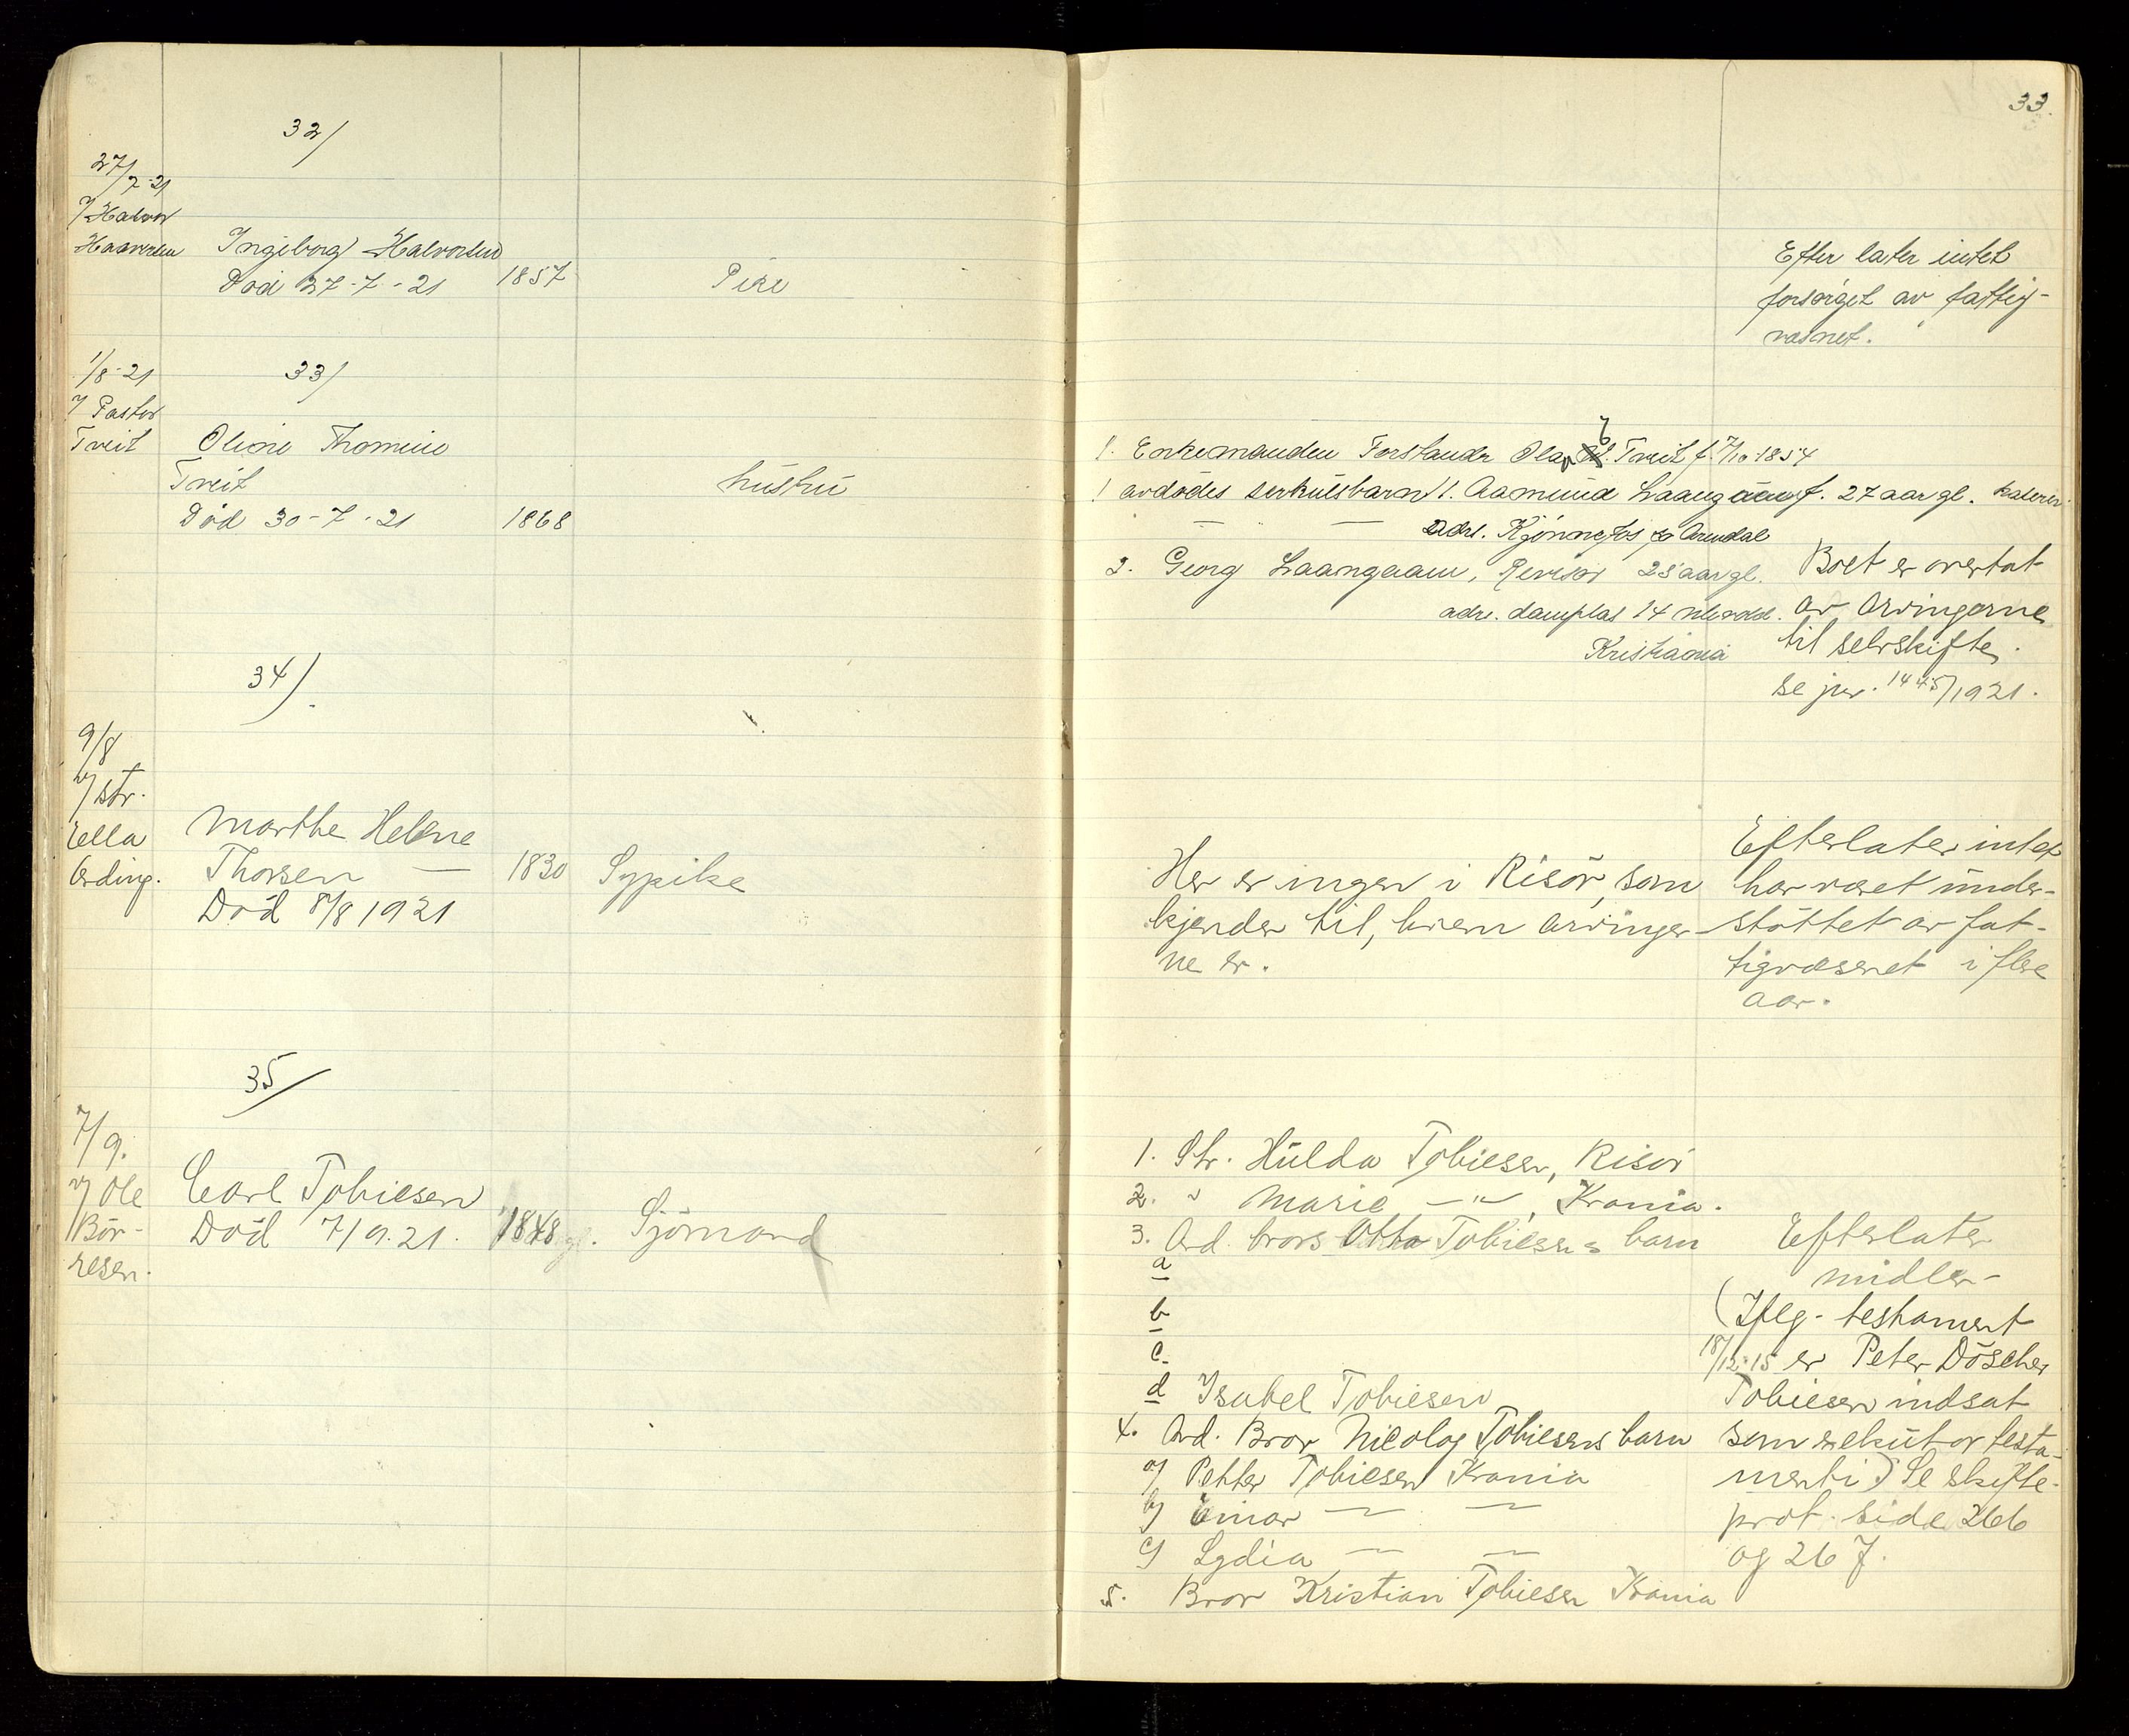 33.
32/
27/7-21
v/ Halvor
Haavorsen
Ingeborg Halvorsen
Död 27-7-21
1857
Pike
Efter later intet
forsörget av fattig-
væsnet.
1/8-21
v/ Pastor
Treit
33/
Oline Thomine
Treit
Död 30-7-21
1868
hüstrü
1. Enkemanden Forstander Olav Treit f. 7/10-1854
1 avdödes serkulsbarn 1. Aamund Laangaam f. 27 aar gl.
adr. Kjönnefos pr Arendal
2. Georg Laangaam, Revisor 25 aar gl.
adr. damplas 14
Kristiania
Boet er overtat
av Arvingerne
til selvskifte.
se jnr. 1445/1921.
34/.
9/8
v/ str.
Ella
Erding.
Marthe Helene
Thorsen —
Död 8/8 1921
1830
Sypike
Her er ingen i Risör, som
kjender til, hvem arvinger-
ne er.
Efterlater intet
har været ünder-
støttet av fat-
tigvæsenet i flere
aar.
35/
7/9.
v/ Ole
Bör-
resen.
Carl Tobiesen
Död 7/9.21.
1848
Sjömand
1. Str. Hülda Tobiesen, Risör
2. " Marie —"—, Krania.
3. Avd. brors Otto Tobiesens barn
a
b
c.
d Isabel Tobiesen
4. Avd. Bror Nicolay Tobiesens barn
a/ Petter Tobiesen Krania
b/ Einar — —
c/ Lydia — —
5. Bror Kristian Tobiesen Krania
Efterlater
midler-
(Iflg- testament
18/12-15 er Peter Döscher
Tobiesen indsat
som eksekütor testa-
menti) Se skifte-
prot. side 266
og 267.